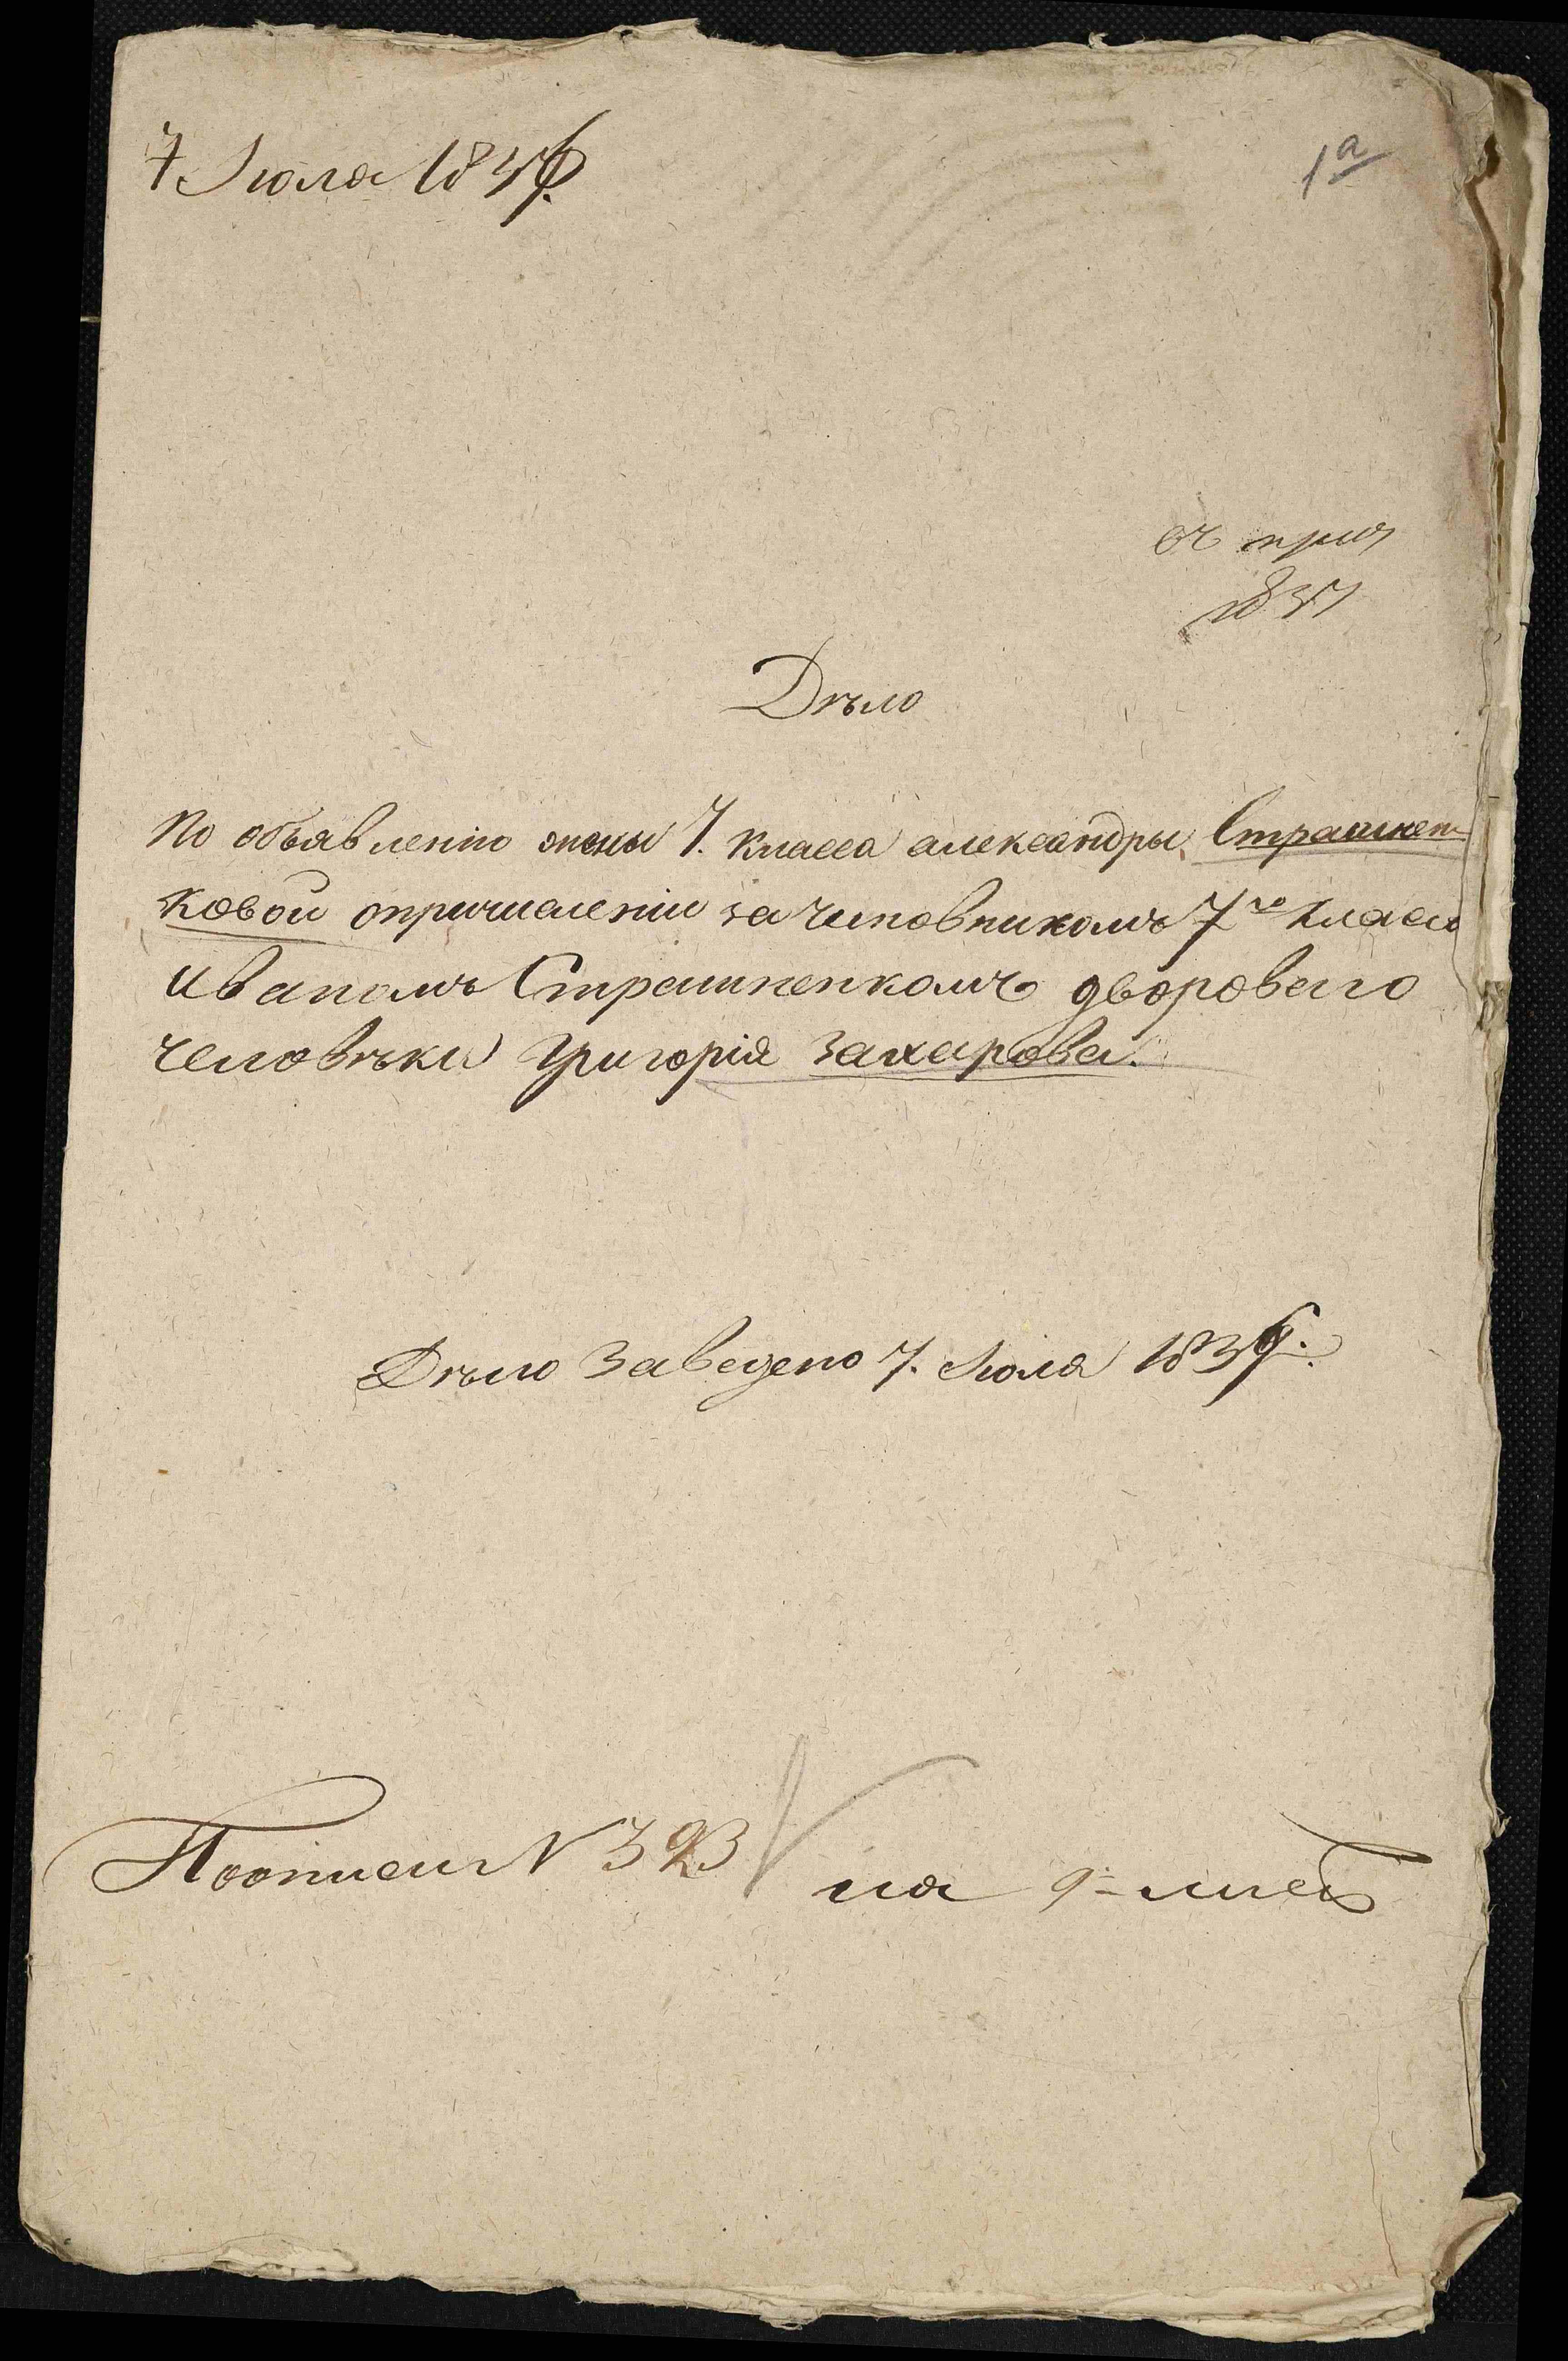 7 Июля 1836.
1а
1837
Дѣло
По объявлению жены 7. класса александры Страшнен-
ковой опричислении за чиновникомъ 7го класса
Иваномъ Страшненкомъ дворового
человѣка Григорія Захарова.
Дѣло заведено 7. Июля 1836.
По описи N 323
на 9 лист